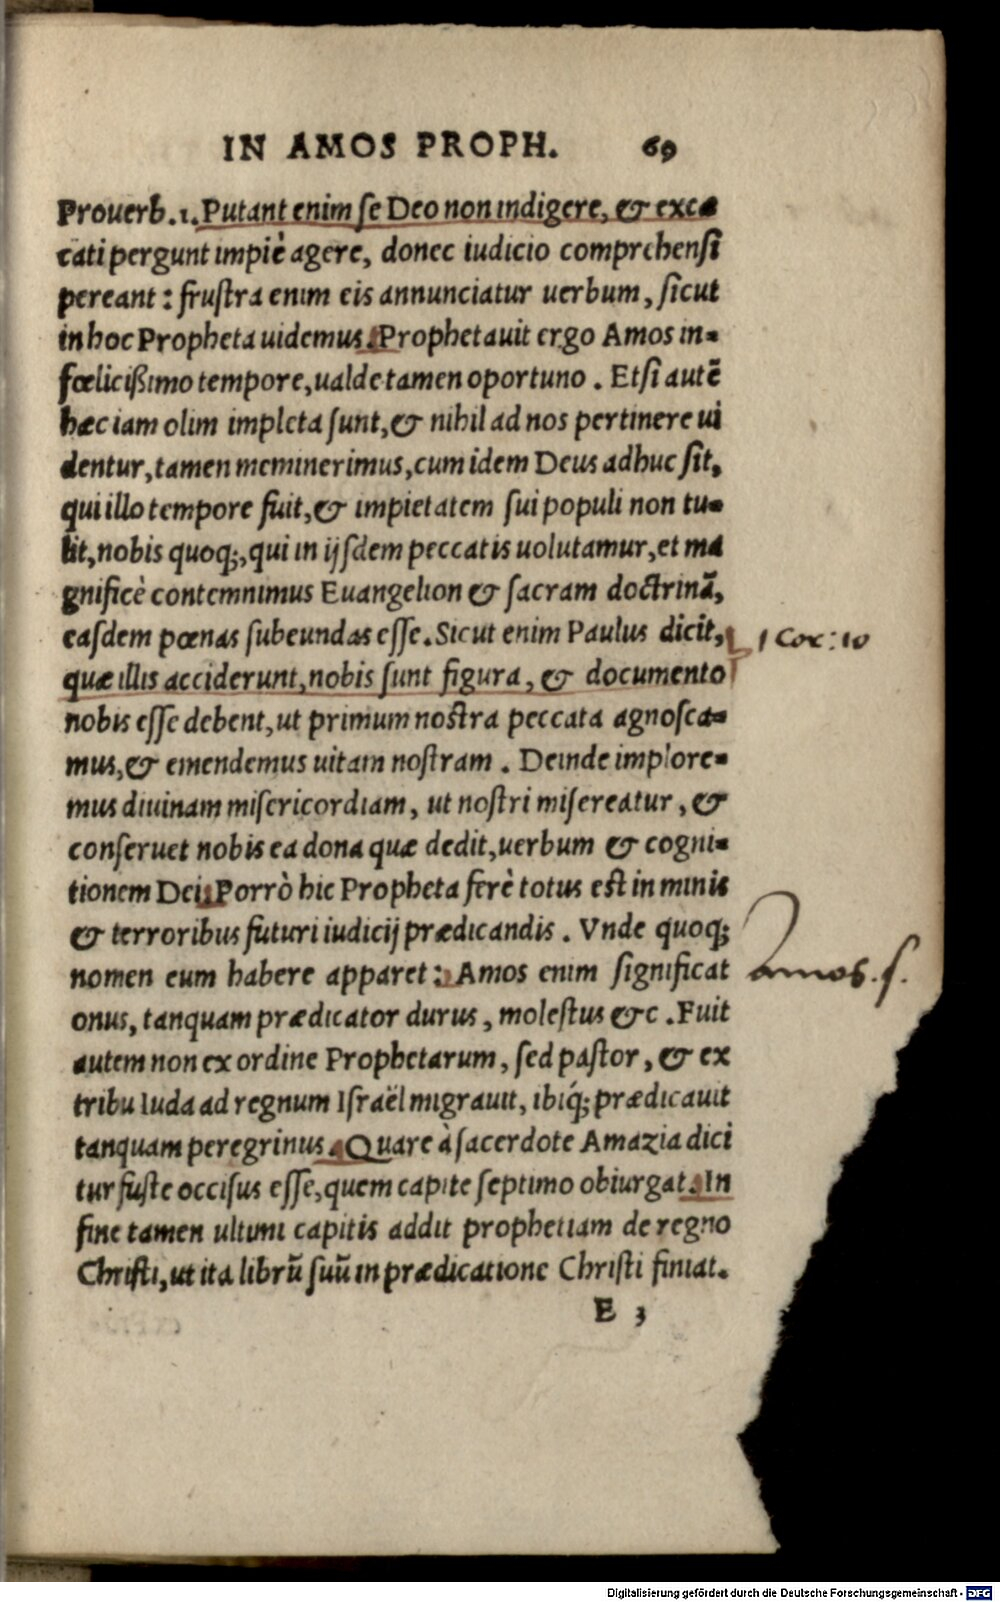 IN AMOS PROPH. 69
Prouerb.1. Putant enim se Deo non indigere, & excæ
cati pergunt impiè agere, donec iudicio comprehensi
pereant: frustra enim eis annunciatur uerbum, sicut
in hoc Propheta uidemus. Prophetauit ergo Amos in-
fœlicißimo tempore, ualde tamen oportuno. Etsi autē
hæc iam olim impleta sunt, & nihil ad nos pertinere ui
dentur, tamen meminerimus, cum idem Deus adhuc sit,
qui illo tempore fuit, & impietatem sui populi non tu-
lit, nobis quoq;, qui in ijsdem peccatis uolutamur, et ma
gnificè contemnimus Euangelion & sacram doctrinā,
easdem pœnas subeundas esse. Sicut enim Paulus dicit, 1 Cor: 10
quæ illis acciderunt, nobis sunt figura, & documento
nobis esse debent, ut primum nostra peccata agnosca-
mus, & emendemus uitam nostram. Deinde implore-
mus diuinam misericordiam, ut nostri misereatur, &
conseruet nobis ea dona quæ dedit, uerbum & cogni-
tionem Dei. Porrò hic Propheta ferè totus est in minis
& terroribus futuri iudicij prædicandis. Vnde quoq;
nomen eum habere apparet: Amos enim significat Amos. s.
onus, tanquam prædicator durus, molestus &c. Fuit
autem non ex ordine Prophetarum, sed pastor, & ex
tribu Iuda ad regnum Israël migrauit, ibiq́; prædicauit
tanquam peregrinus. Quare à sacerdote Amazia dici
tur fuste occisus esse, quem capite septimo obiurgat. In
fine tamen ultimi capitis addit prophetiam de regno
Christi, ut ita librū suū in prædicatione Christi finiat.
E 3
Digitalisierung gefördert durch die Deutsche Forschungsgemeinschaft - DFG